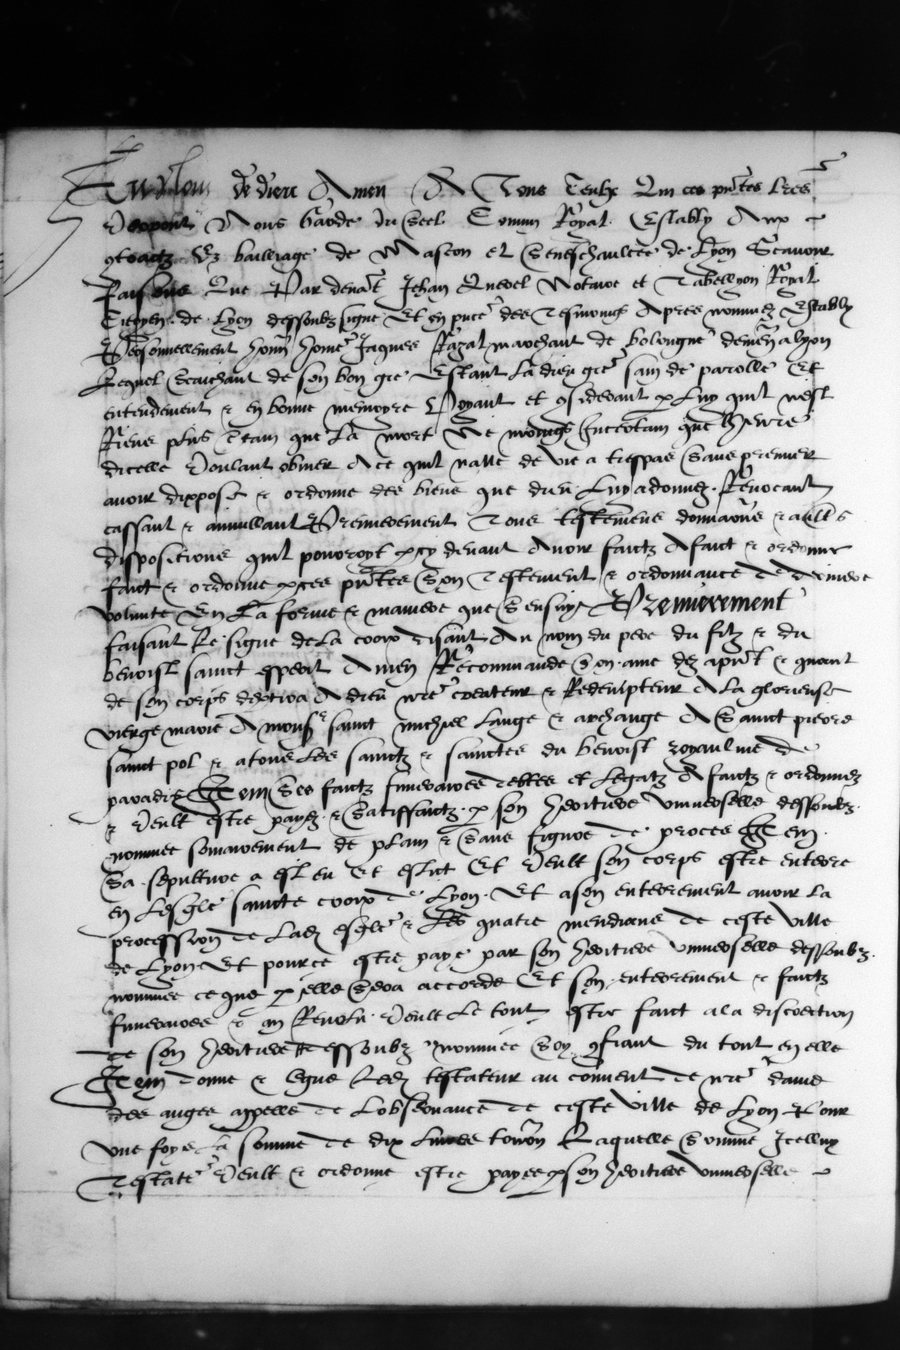 Au nom de dieu Amen A Tous Ceulx Qui ces pntes lres
Verront Nous Garde du Seel Comun Royal Estably Aux
contractz Es bailliage de Mascon et Seneschaulcee de Lyon Scavoir
Faisons Que Par devat Jehan Notaire et Tabellyon Royal
Citoyen de Lyon dessoubz signe Et en pnce des Tesmoings Apres nommez Estably
Personnellement honn home Jaques marchant de boloingne demen a lyon
Lequel Scaichant de son bon gre Estant La dieu gre sain de parolle Et
entendement & en bonne memoyre Voyant et considerant p Luy quil nest
Riens plus Certain que La mort Ne moings Incertain que Lheure
dicelle Voulant obvier A ce quil naille de vie a trespas Sans premier
avoir dispose & ordonne des biens que dieu Luy a donnez Revocant
cassant & annullant Premierement Tous testemens donnaons & aults
dispositions quil pourroyt p cy devant Avoir faictz A faict & ordonne
faict & ordonne p ces pntes Son Testement & ordonnance de derniere
volunte En La forme & maniere que Sensuyt Premierement
faisant Le signe de La croix disant Au nom du pere du filz & du
benoist sainct esperit Amen Recommande Son ame dez a pnt & quant
de son corps A dieu nre createur & Redempteur A La glorieuse
vierge marie A monsr sainct michiel Lange & archange A Sainct pierre
sainct pol & a tous Les sainctz & sainctes du benoist royaulme de
paradis Item Ses faictz funeraires debtes et Legatz A faictz & ordonnez
& Veult estre payez & Satisffaictz p son heritiere universelle dessoubz
nommee somairement de plain & Sans figure de proces Item
Sa sepulture a esleu Et eslit Et Veult son corps estre enterre
en Lesgle saincte croix de Lyon Et a son enterrement avoir La
procession de Lad esgle & Les quatre mendians de ceste ville
de Lyon Et pource estre paye par son heritiere universelle dessoubz
nommee ce que p elle Sera accorde Et son enterrement & faictz
funeraires & Veult Le tout estre faict a la discretion
de son heritiere dessoubz nommee Soy confiant du tout en elle
Item donne & Legue Led testateur au convent de nre dame
des anges appelle de Lobservance de ceste ville de Lyon Pour
une foys La somme de dix Livres tourn Laquelle Somme Icelluy
Testater Veult & ordonne estre payee p son heritiere universelle